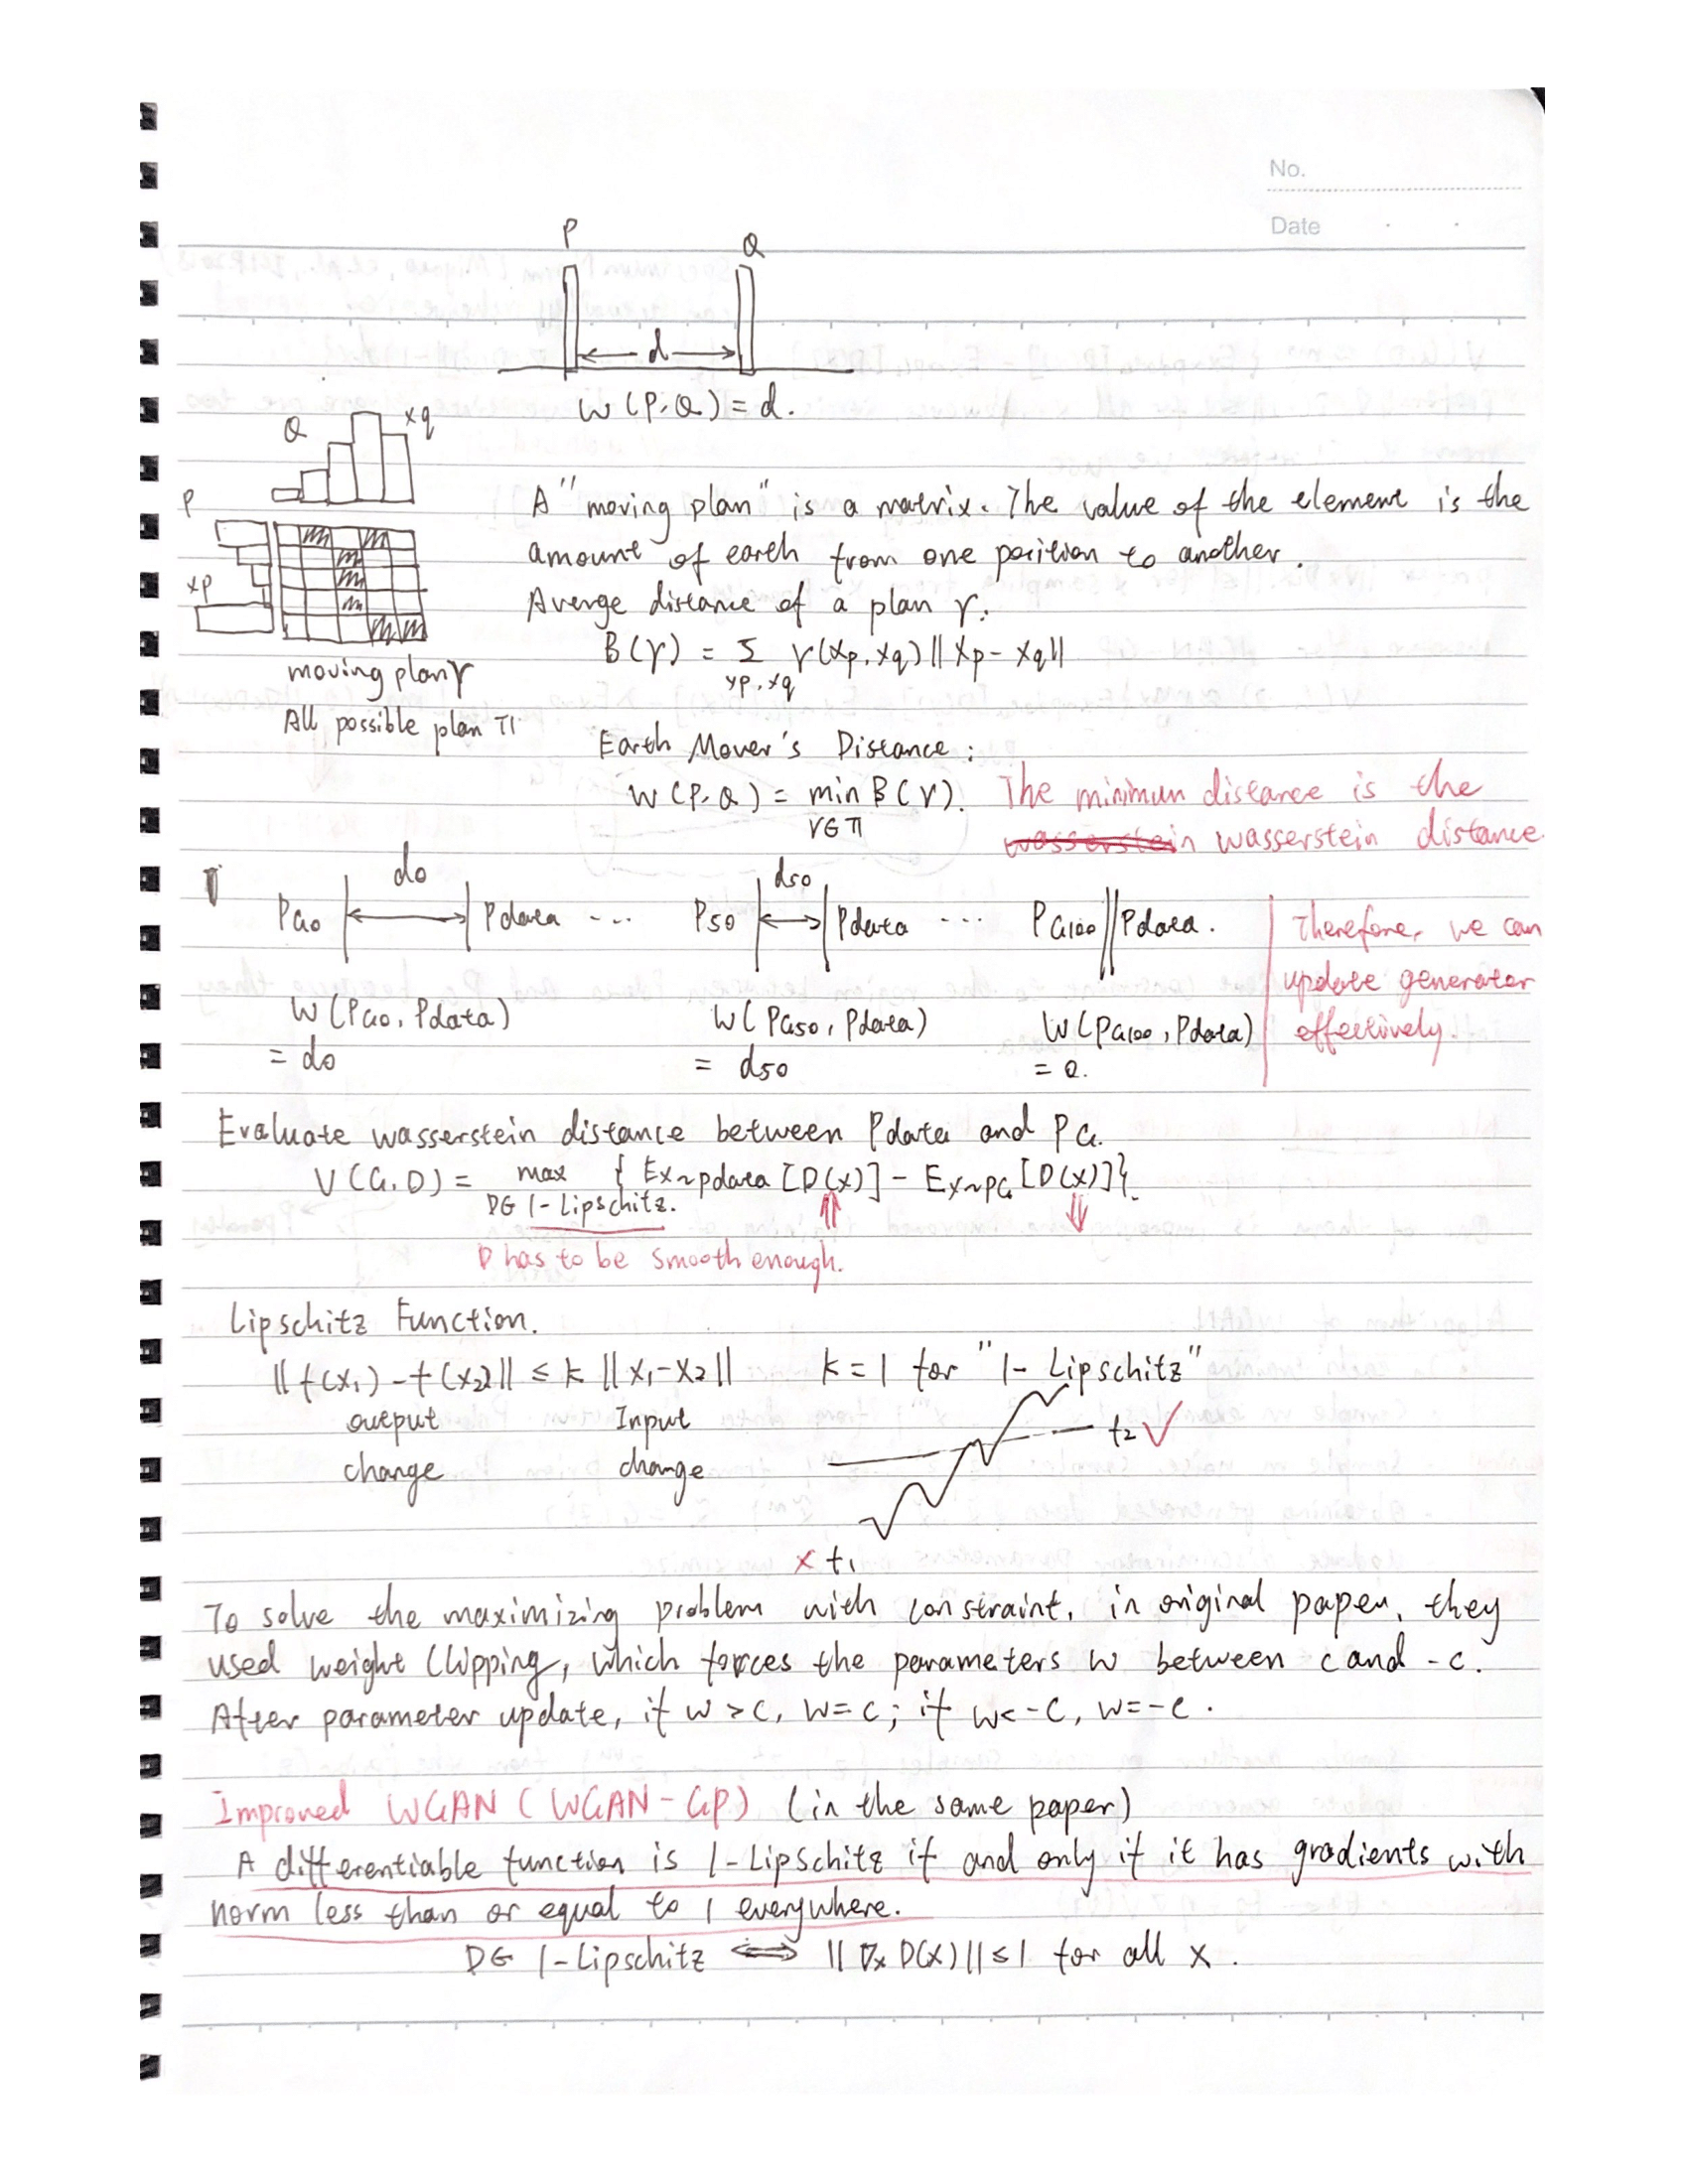 No.
Date
P
Q
d
W(P,Q) = d.
Q
xq
P
xp
moving plan γ
All possible plan Π
A "moving plan" is a matrix. The value of the element is the
amount of earth from one position to another.
Averge distance of a plan γ:
B(γ) = Σ γ(xp,xq)||xp-xq||
xp,xq
Earth Mover's Distance:
W(P,Q) = min B(γ). The minimun distance is the
γ∈Π
wasserstein wasserstein distance
d0
d50
PG0 Pdata ... P50 Pdata ... PG100 Pdata.
Therefore, we can
update generator
effectively.
W(PG0, Pdata) W(PG50, Pdata) W(PG100, Pdata)
= d0 = d50 = 0.
Evaluate wasserstein distance between Pdata and PG.
V(G,D) = max { Ex~pdata [D(x)] - Ex~PG [D(x)]}.
D∈ 1-Lipschitz.
D has to be smooth enough.
Lipschitz Function.
||f(x1)-f(x2)|| ≤ k ||x1-x2|| k=1 for "1-Lipschitz"
output Input
change change
f2 ✓
x f1
To solve the maximizing problem with constraint, in original paper, they
used weight Clipping, which forces the parameters w between c and -c.
After parameter update, if w>c, w=c; if w<-c, w=-c.
Improved WGAN (WGAN-GP) (in the same paper)
A differentiable function is 1-Lipschitz if and only if it has gradients with
norm less than or equal to 1 everywhere.
D∈ 1-Lipschitz ⟺ ||∇x D(x)||≤1 for all x.